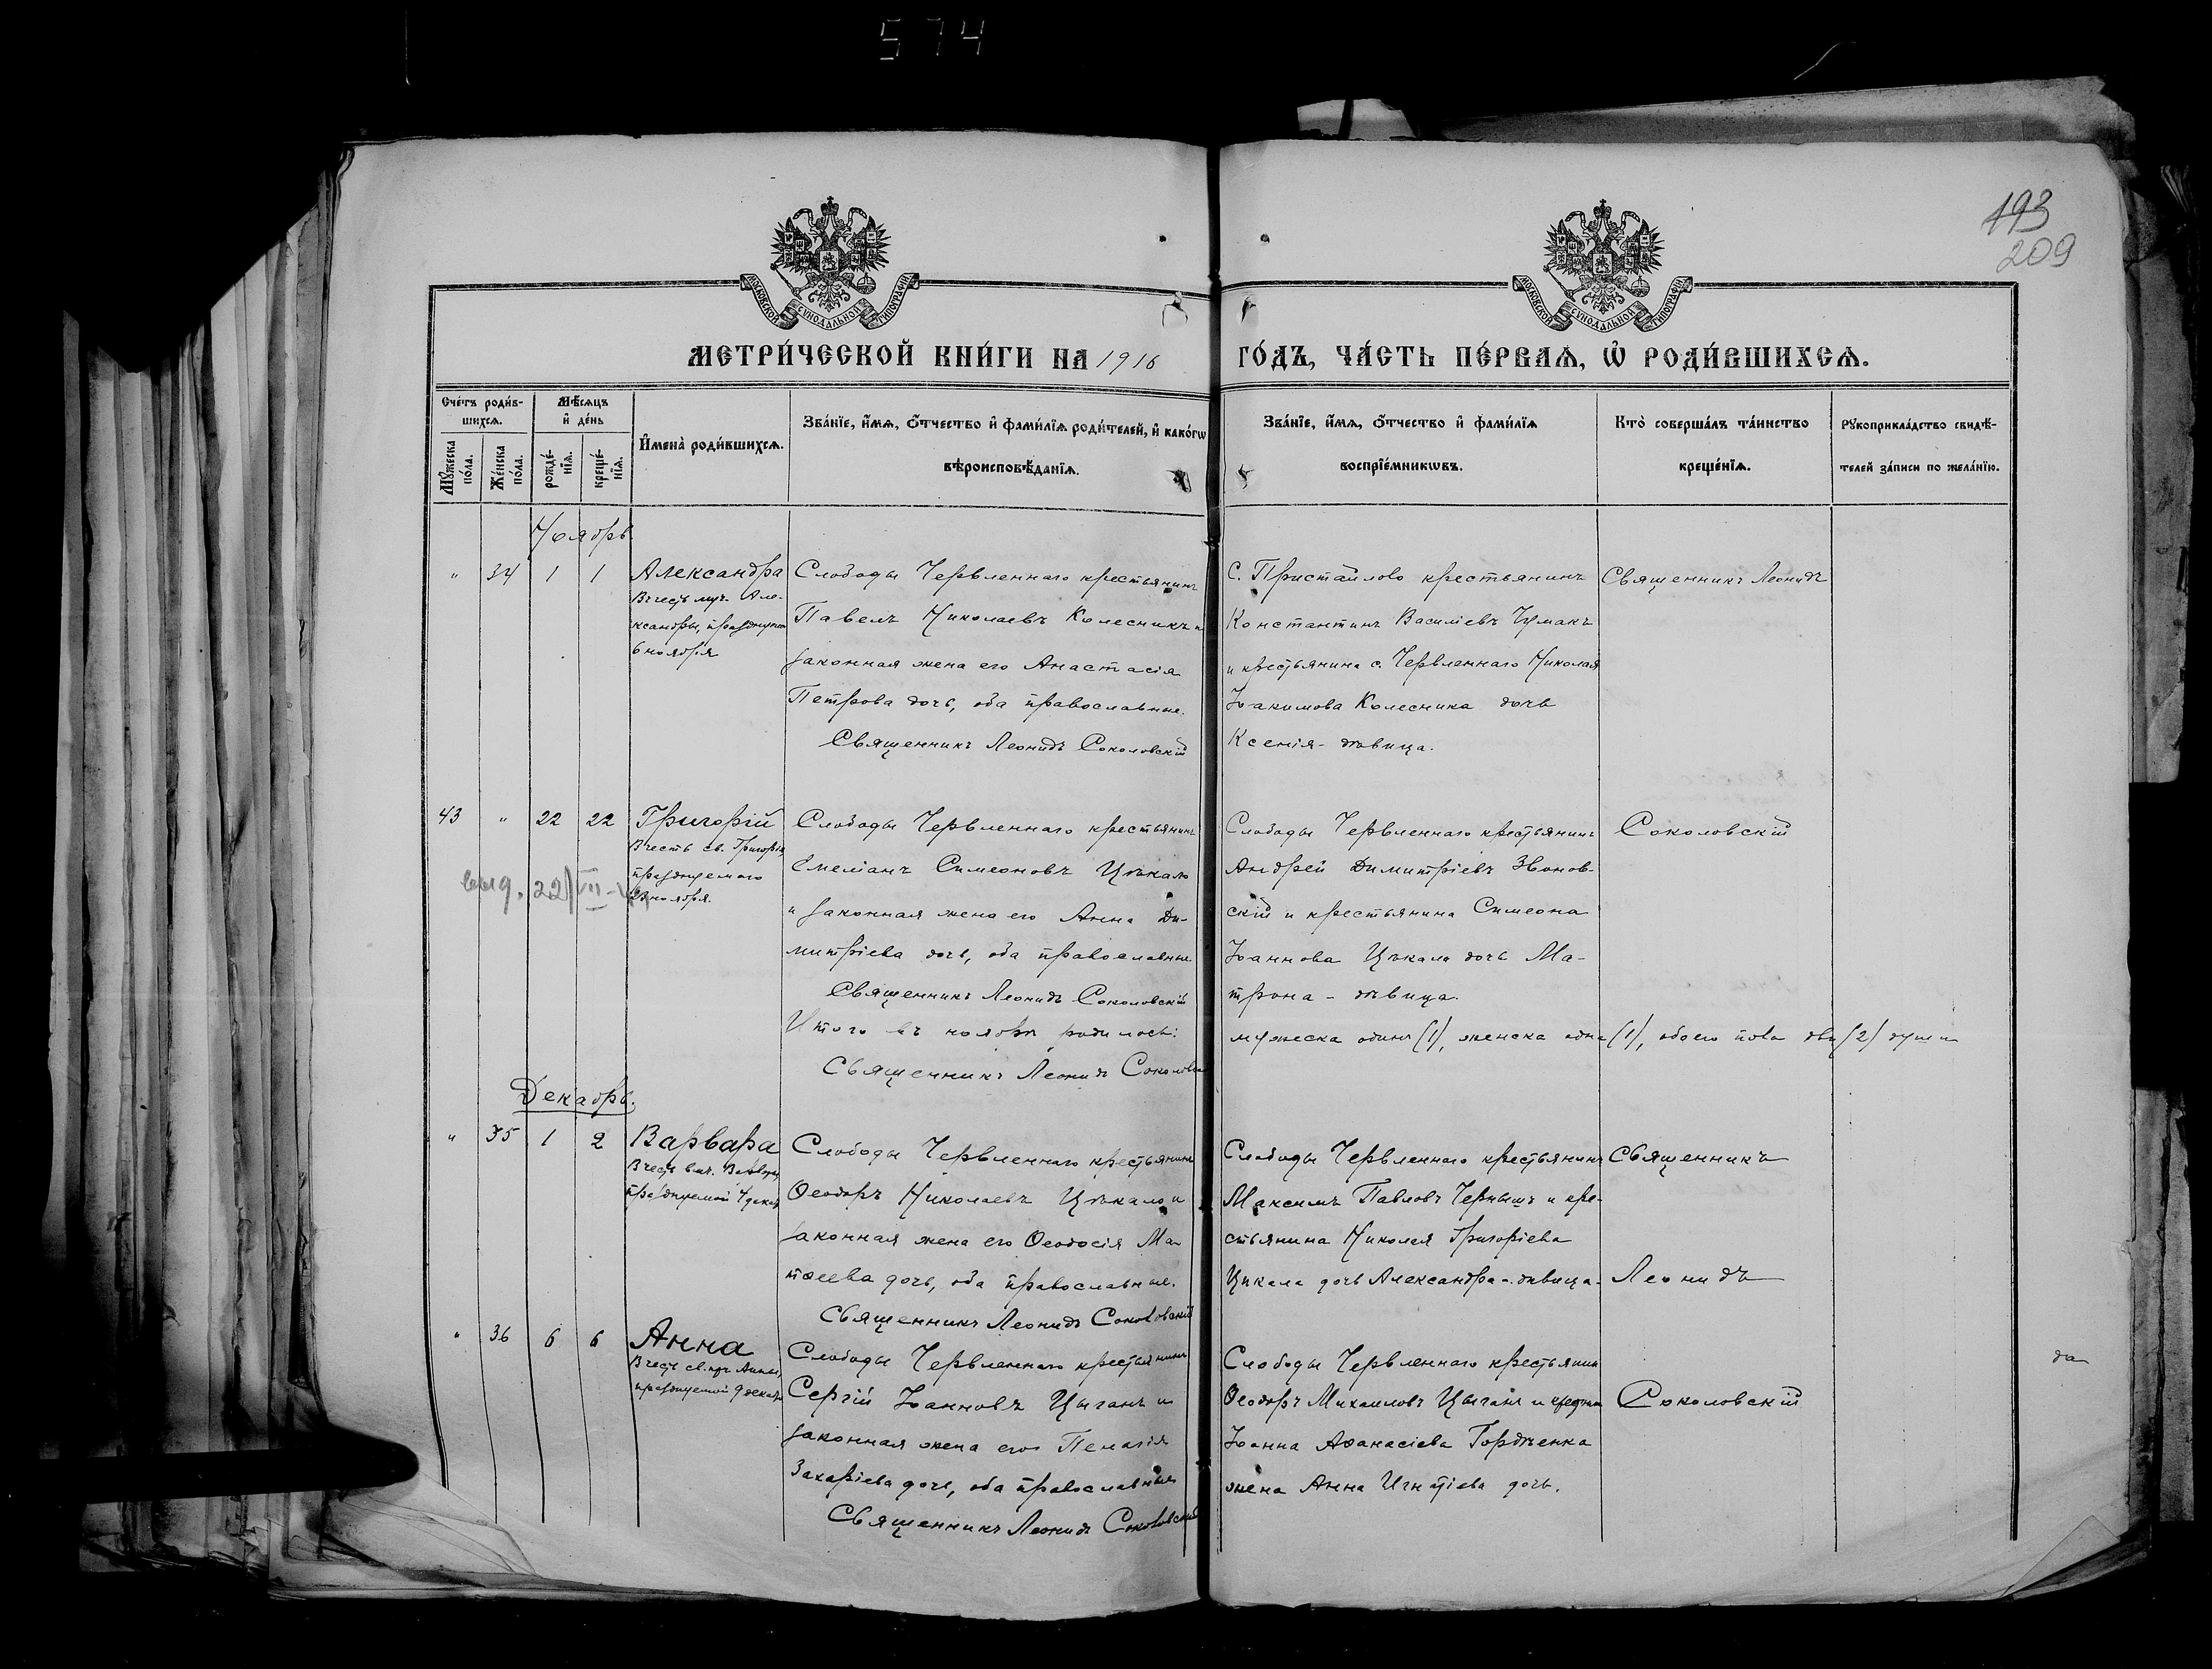 574
193
209
МОСКОВСКОЙ СѴНОДАЛЬНОЙ ТИПОГРАФІИ
МОСКОВСКОЙ СѴНОДАЛЬНОЙ ТИПОГРАФІИ
МЕТРИ́ЧЕСКОЙ КНИ́ГИ НА 1916
ГО́ДЪ, ЧА́СТЬ ПЕ́РВАѦ, Ѡ҆ РОДИ́ВШИХСѦ.
Сче́тъ роди́в-
шихсѧ.
Мꙋ́жеска
по́ла.
Же́нска
по́ла.
Мѣ́сѧцъ
и҆ де́нь
рожде́-
нїѧ.
креще́-
нїѧ.
И҆мена̀ роди́вшихсѧ.
Зва́нїе, и҆́мѧ, ѻ҆́тчество и҆ фами́лїѧ роди́телей, и҆ како́гѡ
вѣроисповѣ́данїѧ.
Зва́нїе, и҆́мѧ, ѻ҆́тчество и҆ фами́лїѧ
воспрїе́мникѡвъ.
Кто̀ соверша́лъ та́инство
креще́нїѧ.
Рꙋкоприкла́дство свидѣ́-
телей за́писи по жела́нїю.
Ноябрь
" 34 1 1 Александра
Въ честь муч. Але-
ксандры, празднуемой
6 ноября
Слободы Червленнаго крестьянинъ
Павелъ Николаевъ Колесникъ и
законная жена его Анастасія
Петрова дочь, оба православные.
Священникъ Леонидъ Соколовскій
С. Пристайлово крестьянинъ
Константинъ Василіевъ Чумакъ
и крестьянина с. Червленнаго Николая
Іоакимова Колесника дочь
Ксенія - дѣвица.
Священникъ Леонидъ
43 " 22 22 Григорій
Въ честь св. Григорія,
празднуемаго
23 ноября.
выд. 22/VII
Слободы Червленнаго крестьянинъ
Емеліанъ Симеоновъ Цѣкало
и законная жена его Анна Ди-
митріева дочь, оба православные.
Священникъ Леонидъ Соколовскій
Слободы Червленнаго крестьянинъ
Андрей Димитріевъ Звонов-
скій и крестьянина Симеона
Іоаннова Цѣкало дочь Ма-
трона - дѣвица.
Соколовскій
Итого въ ноябрѣ родилось: мужеска одинъ (1), женска одна (1), обоего пола двѣ (2) души
Священникъ Леонидъ Соколовскій
Декабрь.
" 35 1 2 Варвара
Въ честь вмч. Варвары,
празднуемой 4 декаб.
Слободы Червленнаго крестьянинъ
Ѳеодоръ Николаевъ Цѣкало и
законная жена его Ѳеодосія Ма-
тѳеева дочь, оба православные.
Священникъ Леонидъ Соколовскій
Слободы Червленнаго крестьянинъ
Максимъ Павловъ Чернышъ и кре-
стьянина Николая Григоріева
Цѣкала дочь Александра - дѣвица.
Священникъ
Леонидъ
" 36 6 6 Анна
Въ честь св. прр. Анны,
празднуемой 9 декаб.
Слободы Червленнаго крестьянинъ
Сергій Іоанновъ Цыганъ и
законная жена его Пелагія
Захаріева дочь, оба православные
Священникъ Леонидъ Соколовскій
Слободы Червленнаго крестьянин
Ѳеодоръ Михаиловъ Цыганъ и
Іоанна Аѳанасіева Гордѣенка
жена Анна Игнатіева дочь.
Соколовскій
да